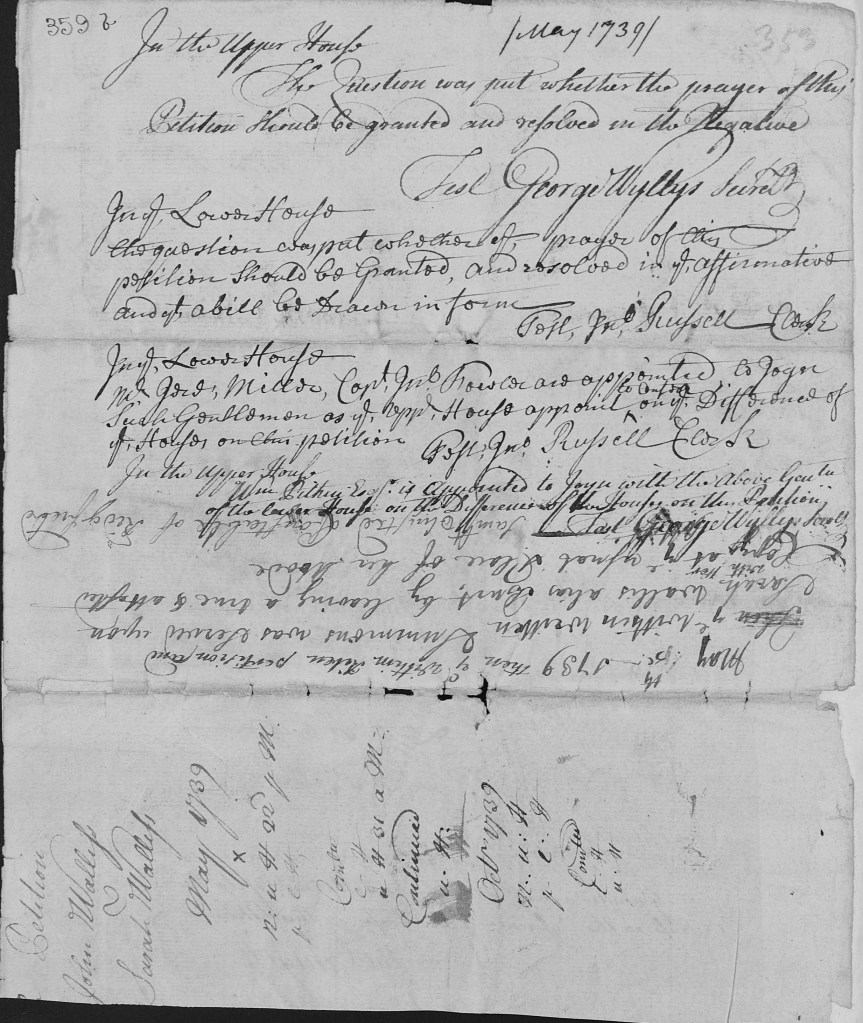 359 b
/May 1739/
353
In the Upper House
The Question was put whether the prayer of this
Petition should be granted and resolved in the Negative
Test George Wyllys Secret.ry
In ye Lower House
the question was put whether ye prayer of this
petition Should be Granted, and resolved in ye affirmative
and yt a bill be Drawn in form
Test, Jno Russell Clerk
In ye Lower House
Mr Jere; Miller, Capt. Jno Fowler are appointed to Joyn
Such Gentlemen as ye uppr. House appoint to Confer on ye Difference of
ye Houses on this petition
Test, Jno Russell Clerk
In the Upper House
Wm Pitkin Esqr. is Appointed to Joyn with the Above Gentn
of the Lower House on the Difference of the Houses on this Petition
Test George Wyllys Secret.ry
May 1739 then ye within petition and
ye within written Summons was Served upon
Sarah Wallis alias by leaving a true & attested
Copy with Her at ye usual Place of her abode
Petition
John Walliss
Sarah Walliss
May 1739
x
n: u H
Comtee
u H
Continued
u: H:
Octr. 1739
n: u: H
Comtee
u: H